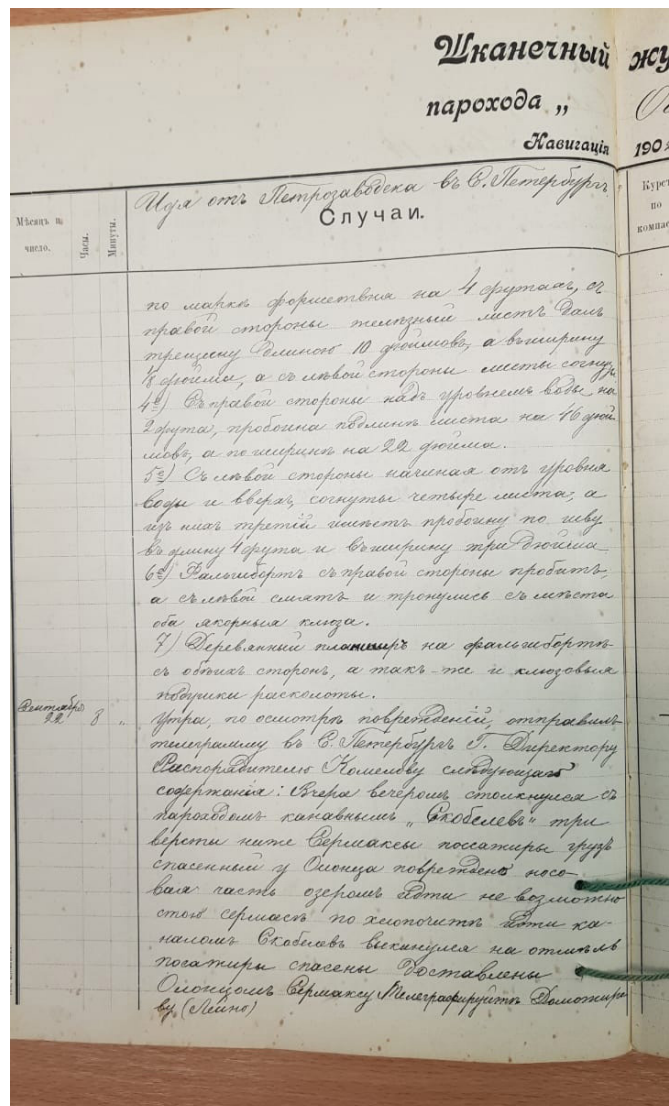 Шканечный жу
парохода „
Навигація 190
Идя отъ Петрозаводска въ С. Петербургъ.
Случаи.
Мѣсяцъ и число.
Часы.
Минуты.
Курсъ по компас
по марке форштевня на 4 футахъ, съ
правой стороны железный листъ далъ
трещину длиною 10 дюймовъ, а въ ширину
1/8 дюйма, а съ лѣвой стороны листы согнуты
4е) Съ правой стороны надъ уровнемъ воды на
2 фута, пробоина по длинѣ листа на 16 дюй-
мовъ, а по ширинѣ на 22 дюйма.
5е) Съ лѣвой стороны начиная отъ уровня
воды и вверхъ, согнуты четыре листа, а
изъ нихъ третій имѣетъ пробоину по шву
въ длину 4 фута и въ ширину три дюйма
6е) Фальшбортъ съ правой стороны пробитъ,
а съ лѣвой смятъ и тронулись съ мѣста
оба якорныя клюза.
7) Деревянный планширъ на фальшбортѣ
съ обѣихъ сторонъ, а такъ-же и клюзовыя
подушки расколоты.
Сентября 22 8 „ Утра, по осмотрѣ поврежденій, отправилъ
телеграмму въ С. Петербургъ Г. Директору
Распорядителю Комелову слѣдующаго
содержанія: Вчера вечеромъ столкнулся съ
пароходомъ канавнымъ „Скобелевъ" три
версты ниже Сермаксы поссажиры грузъ
спасенный у Олонца поврежденъ носо-
вая часть озеромъ идти не возможно
стою сермаксъ похлопочите идти ка-
наломъ Скобелевъ выкинулся на отмѣль
посажиры спасены доставлены
Олонцомъ Сермаксу Телеграфируйте Доможиро
ву (Лейно)